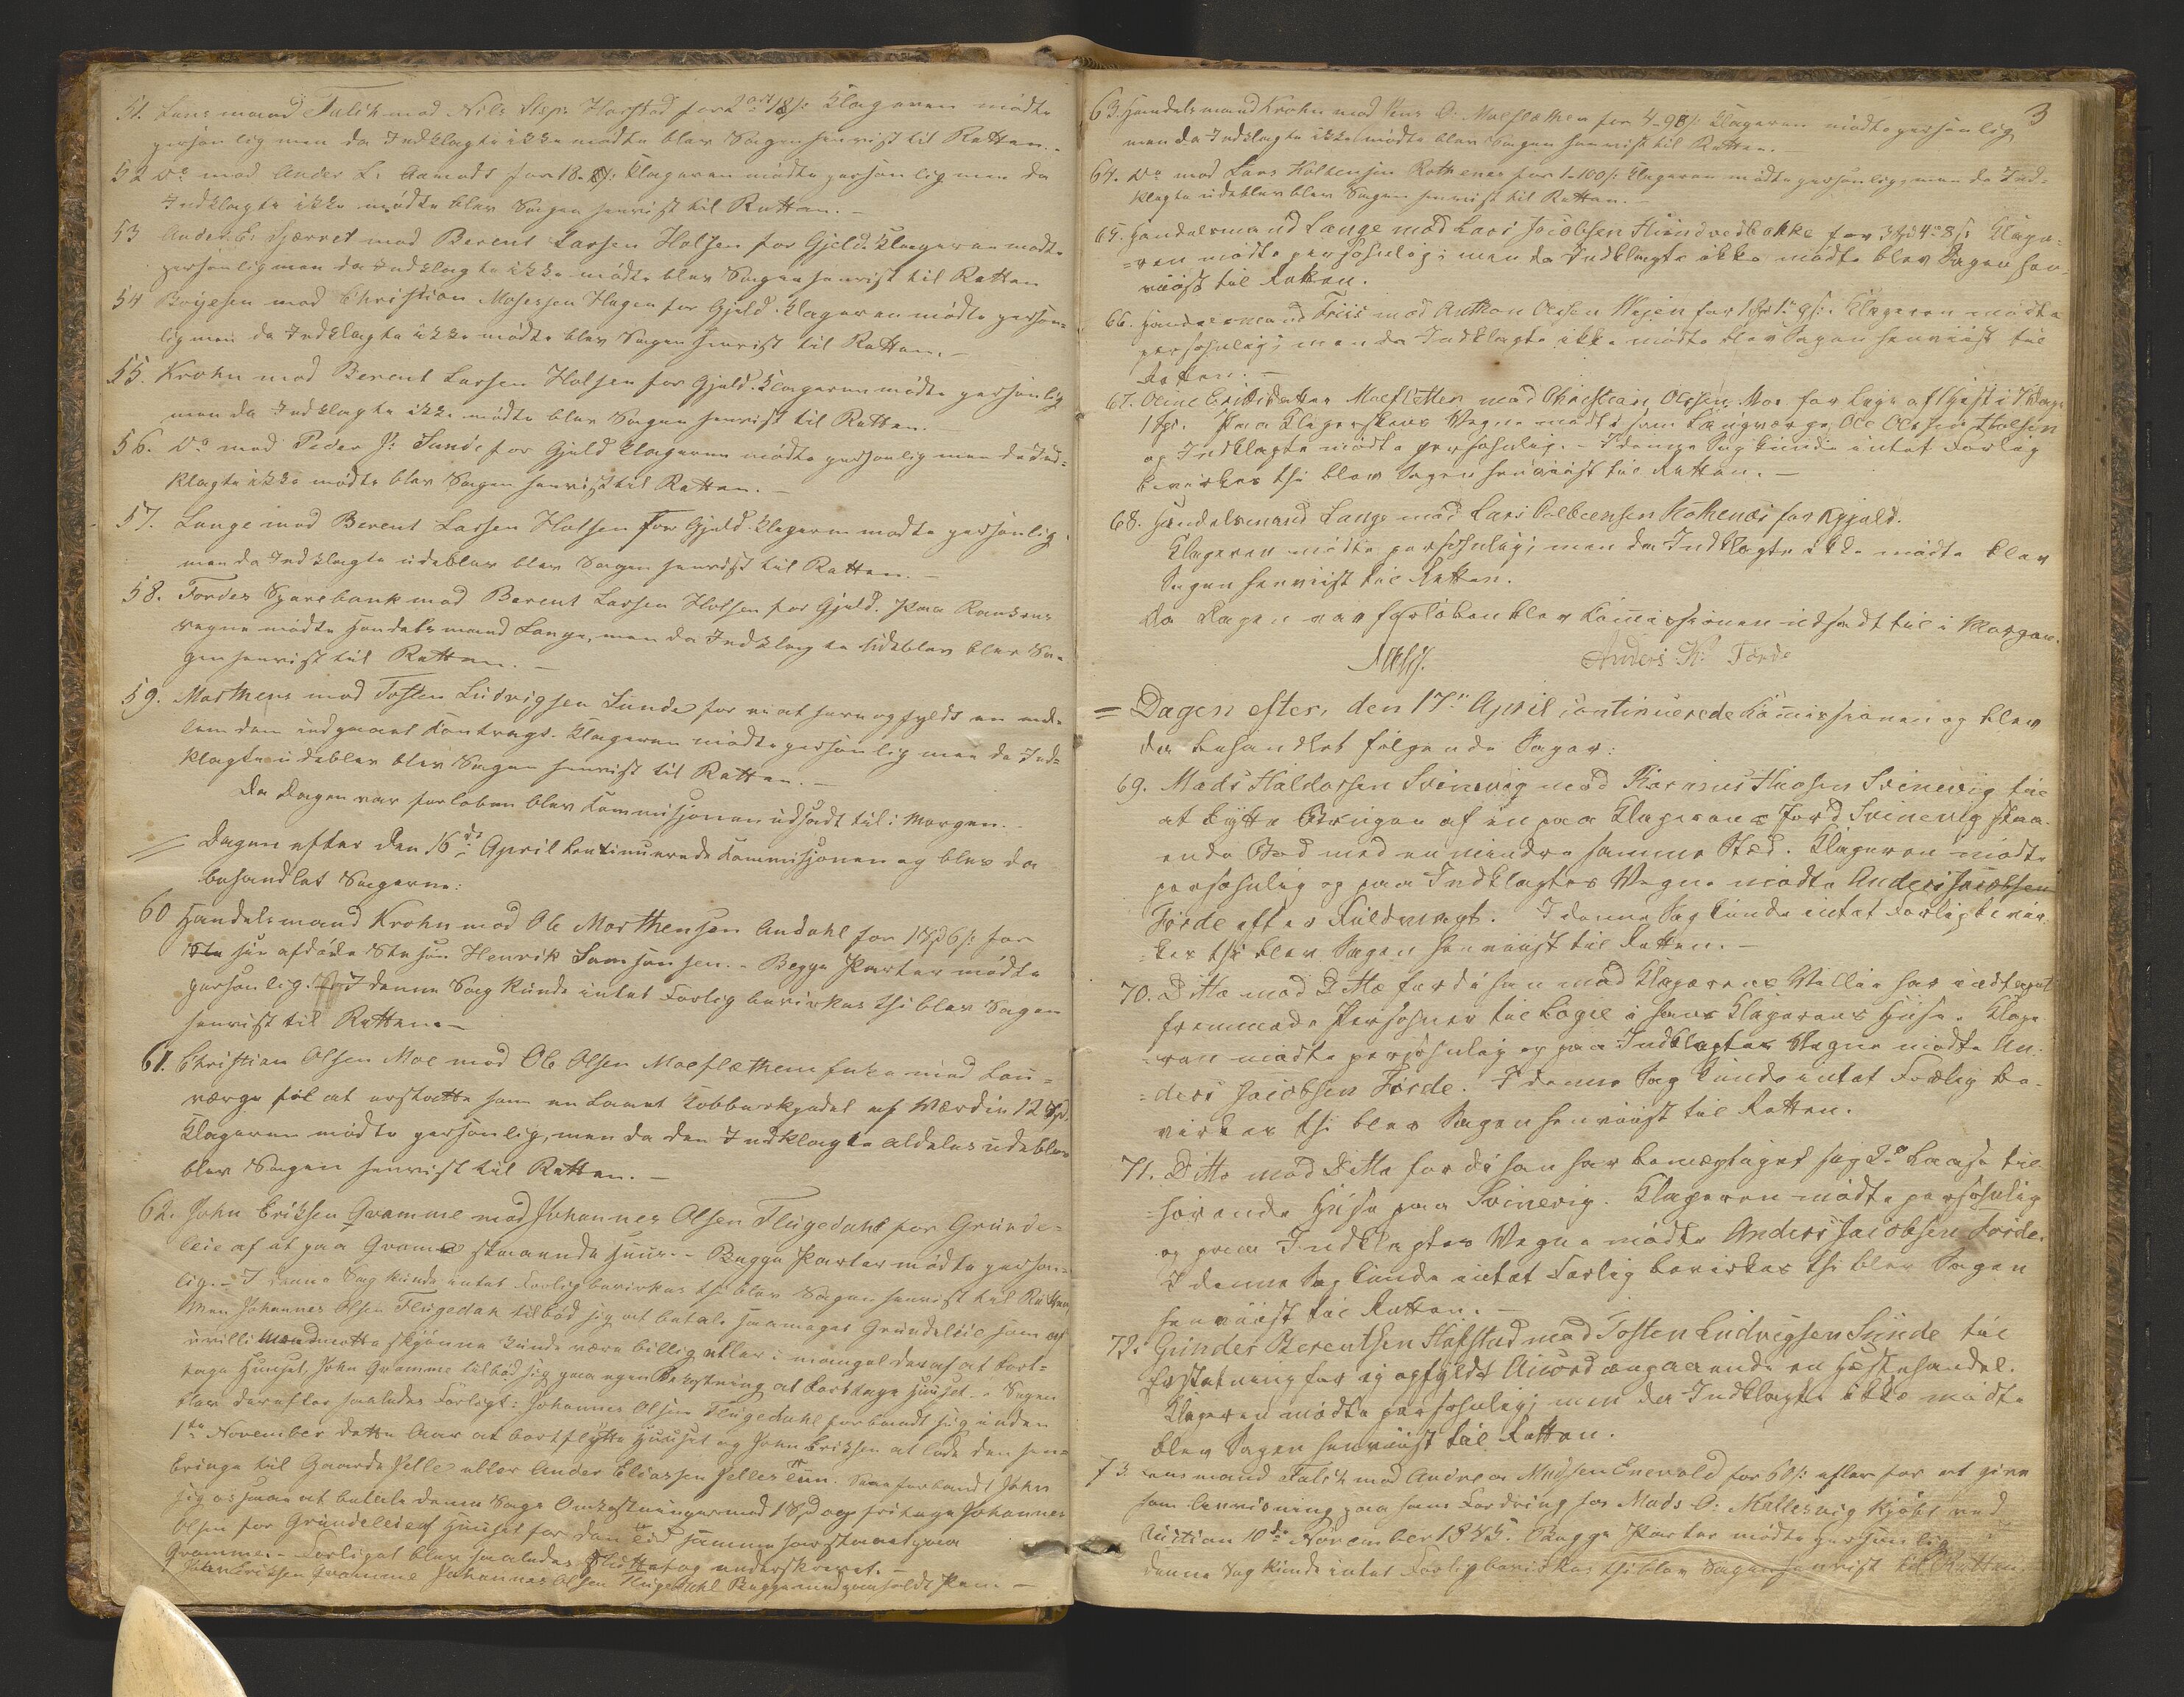 51. Lensmand Falch mod Nils Steps Harstad for 2 ort 18 s: Klageren mødte
personlig men da Indklagte ikke mødte blev Sagen henvist til Retten. -
52 Do mod Ander L: Aamodt for 18. s: Klageren mødte personlig men da
Indklagte ikke mødte blev Sagen henvist til Retten. -
53 Ander E: mod Berent Larsen Holsen for Gjeld. Klageren mødte
personlig men da Indklagte ikke mødte blev Sagen henvist til Retten
54 Boyesen mod Christian Mosessen Hagen for Gjeld. Klageren mødte person=
lig men da Indklagte ikke mødte blev Sagen henvist til Retten. -
55. Krohn mod Berent Larsen Holsen for Gjeld. Klageren mødte personlig
men da Indklagte ikke mødte blev Sagen henvist til Retten. -
56. Do mod Peder J: Sunde for Gjeld Klageren mødte personlig men da Ind=
klagte ikke mødte blev Sagen henvist til Retten. -
57. Lange mod Berent Larsen Holsen for Gjeld. Klageren mødte personlig
men da Indklagte udeblev blev Sagen henvist til Retten. -
58. Førdes Sparebank mod Berent Larsen Holsen for Gjeld. Paa Bankens
vegne mødte Handelsmand Lange, men da Indklagte udeblev blev Sa=
gen henvist til Retten. -
59. Marthens mod Tosten Ludvigsen Sunde for ei at have opfyldt en mel=
lem dem indgaaet Kontragt. Klageren mødte personlig men da Ind=
klagte udeblev blev Sagen henvist til Retten. -
Da Dagen var forløben blev Kommissjonen udsadt til i Morgen. -
= Dagen efter den 16de April kontinuerede Kommisjonen og blev da
behandlet Sagerne:
60 Handelsmand Krohn mod Ole Marthensen Andahl for 1 Spd 6 s: for
sin afdøde Stesøn Henrik Samsonsen. - Begge Parter mødte
personlig. I denne Sag kunde intet Forlig bevirkes thi blev Sagen
henvist til Retten. -
61. Christian Olsen Moe mod Ole Olsen Moeflæthene med Lau=
værge til at erstatte ham en laant Kobberkjedel af Værdie 12 Spd.
Klageren mødte personlig, men da den Indklagte aldeles udeblev
blev Sagen henvist til Retten. -
62. John Eriksen Gramme mod Johannes Olsen Flugedahl for Grunde=
leie af et paa Gramme staaende Huus. - Begge Parter mødte person=
lig. - I denne Sag kunde intet Forlig bevirkes thi blev Sagen henvist til Retten,
Men Johannes Olsen Flugedah tilbød sig at betale saameget Grundeleie som af
uvillige Mænd skjønnes kunde være billig eller i mangel deraf at bort=
tage Huuset. John Gramme tilbød sig paa egen Bekostning at borttage Huuset. - Sagen
blev derefter saaledes Forligt: Johannes Olsen Flugedahl forbandt sig inden
1ste November dette Aar at bortflytte Huuset og John Eriksen at lade den hen=
bringe til Gaarde Jelle eller Ander Eliassen Jelles Eiin. forbandt John
sig ogsaa at betale denne Sags Omkostninger med 1 Spd og fritage Johannes
Olsen for Grundeleie af Huuset for den tid samme har staaet paa
Gramme. - Forliget blev saaledes sluttet og underskrevet. -
John Eriksen Gramme Johannes Olsen Flugedahl Begge med paaholdt Pen. -
3
63. Handelsmand Krohn mod Jens O: Moeflæthen for 4 - 98 s: Klageren mødte personlig
men da Indklagte ikke mødte blev Sagen henvist til Retten. -
64. Do mod Lars Holbensen Rothenes for 1 - 100 s: Klageren mødte personlig, men da Ind=
klagte udeblev blev Sagen henvist til Retten. -
65. Handelsmand Lange mod Lars Jacobsen for 3 Spd 4 8 s: Klage=
=ren mødte personlig; men da Indklagte ikke mødte blev Sagen hen=
viist til Retten.
66. Handelsmand Friis mod Anthon Olsen Wejen for 1 Spd 1 9 s: Klageren mødte
personlig; men da Indklagte ikke mødte blev Sagen henviist til
Retten. -
67. Oline Eriksdatter Moefletten mod Christian Olssen Moe for Leje af
1 Spd. Paa Klagerskens Vegne mødte som Laugværge Ole Olssen Holsen
og Indklagte mødte personlig. - I denne Sag kunde intet Forlig
bevirkes thi blev Sagen henviist til Retten. -
68. Handelsmand Lange mod Lars Rothenæs for Gjeld.
Klageren mødte personlig; men da Indklagte ikke mødte blev
Sagen henviist til Retten.
Da Dagen var forløben blev Comissionen udsadt til i Morgen.
Anders K: Førde
= Dagen efter, den 17de April continuerede Comissionen og blev
da behandlet følgende Sager:
69. Mads Haldorsen Svinevig mod Rasmus Svinevig til
at bytte Brugen af en paa Klagerens Jord Svinevig staa=
ende Bod med en mindre samme Sted. Klageren mødte
personlig og paa Indklagtes Vegne mødte Anders Jacobsen
Førde efter Fuldmagt. I denne Sag kunde intet Forlig bevir=
=kes thi blev Sagen henviist til Retten. -
70. Ditto mod Ditto fordi han mod Klagerens Villie har indtaget
fremmede Personer til Logie i hans Klagerens Huse. Klage=
=ren mødte personlig og paa Indklagtes Vegne mødte An=
=ders Jacobsen Førde. I denne Sag kunde intet Forlig be=
virkes thi blev Sagen henviist til Retten.
71. Ditto mod Ditto fordi han har bemægtiget sig 2de Laase til
=hørende Huse paa Svinevig. Klageren mødte personlig
og paa Indklagtes Vegne mødte Anders Jacobsen Førde.
I denne Sag kunde intet Forlig bevirkes thi blev Sagen
henviist til Retten. -
72. Gunder Berentsen Hafstad mod Tosten Ludvigsen Sunde til
Erstatning for ej opfyldt Accord angaaende en Hestehandel.
Klageren mødte personlig; men da Indklagte ikke mødte
blev Sagen henviist til Retten.
73. Lensmand Falch mod Andreas Madsen Enevold for 60 s: eller for at give
ham Anvisning paa hans Fordring hos Mads O: Kallevig kjøbt ved
Auction 10de November 1845. Begge Parter mødte personlig
denne Sag kunde intet Forlig bevirkes thi blev Sagen henvist til Retten.